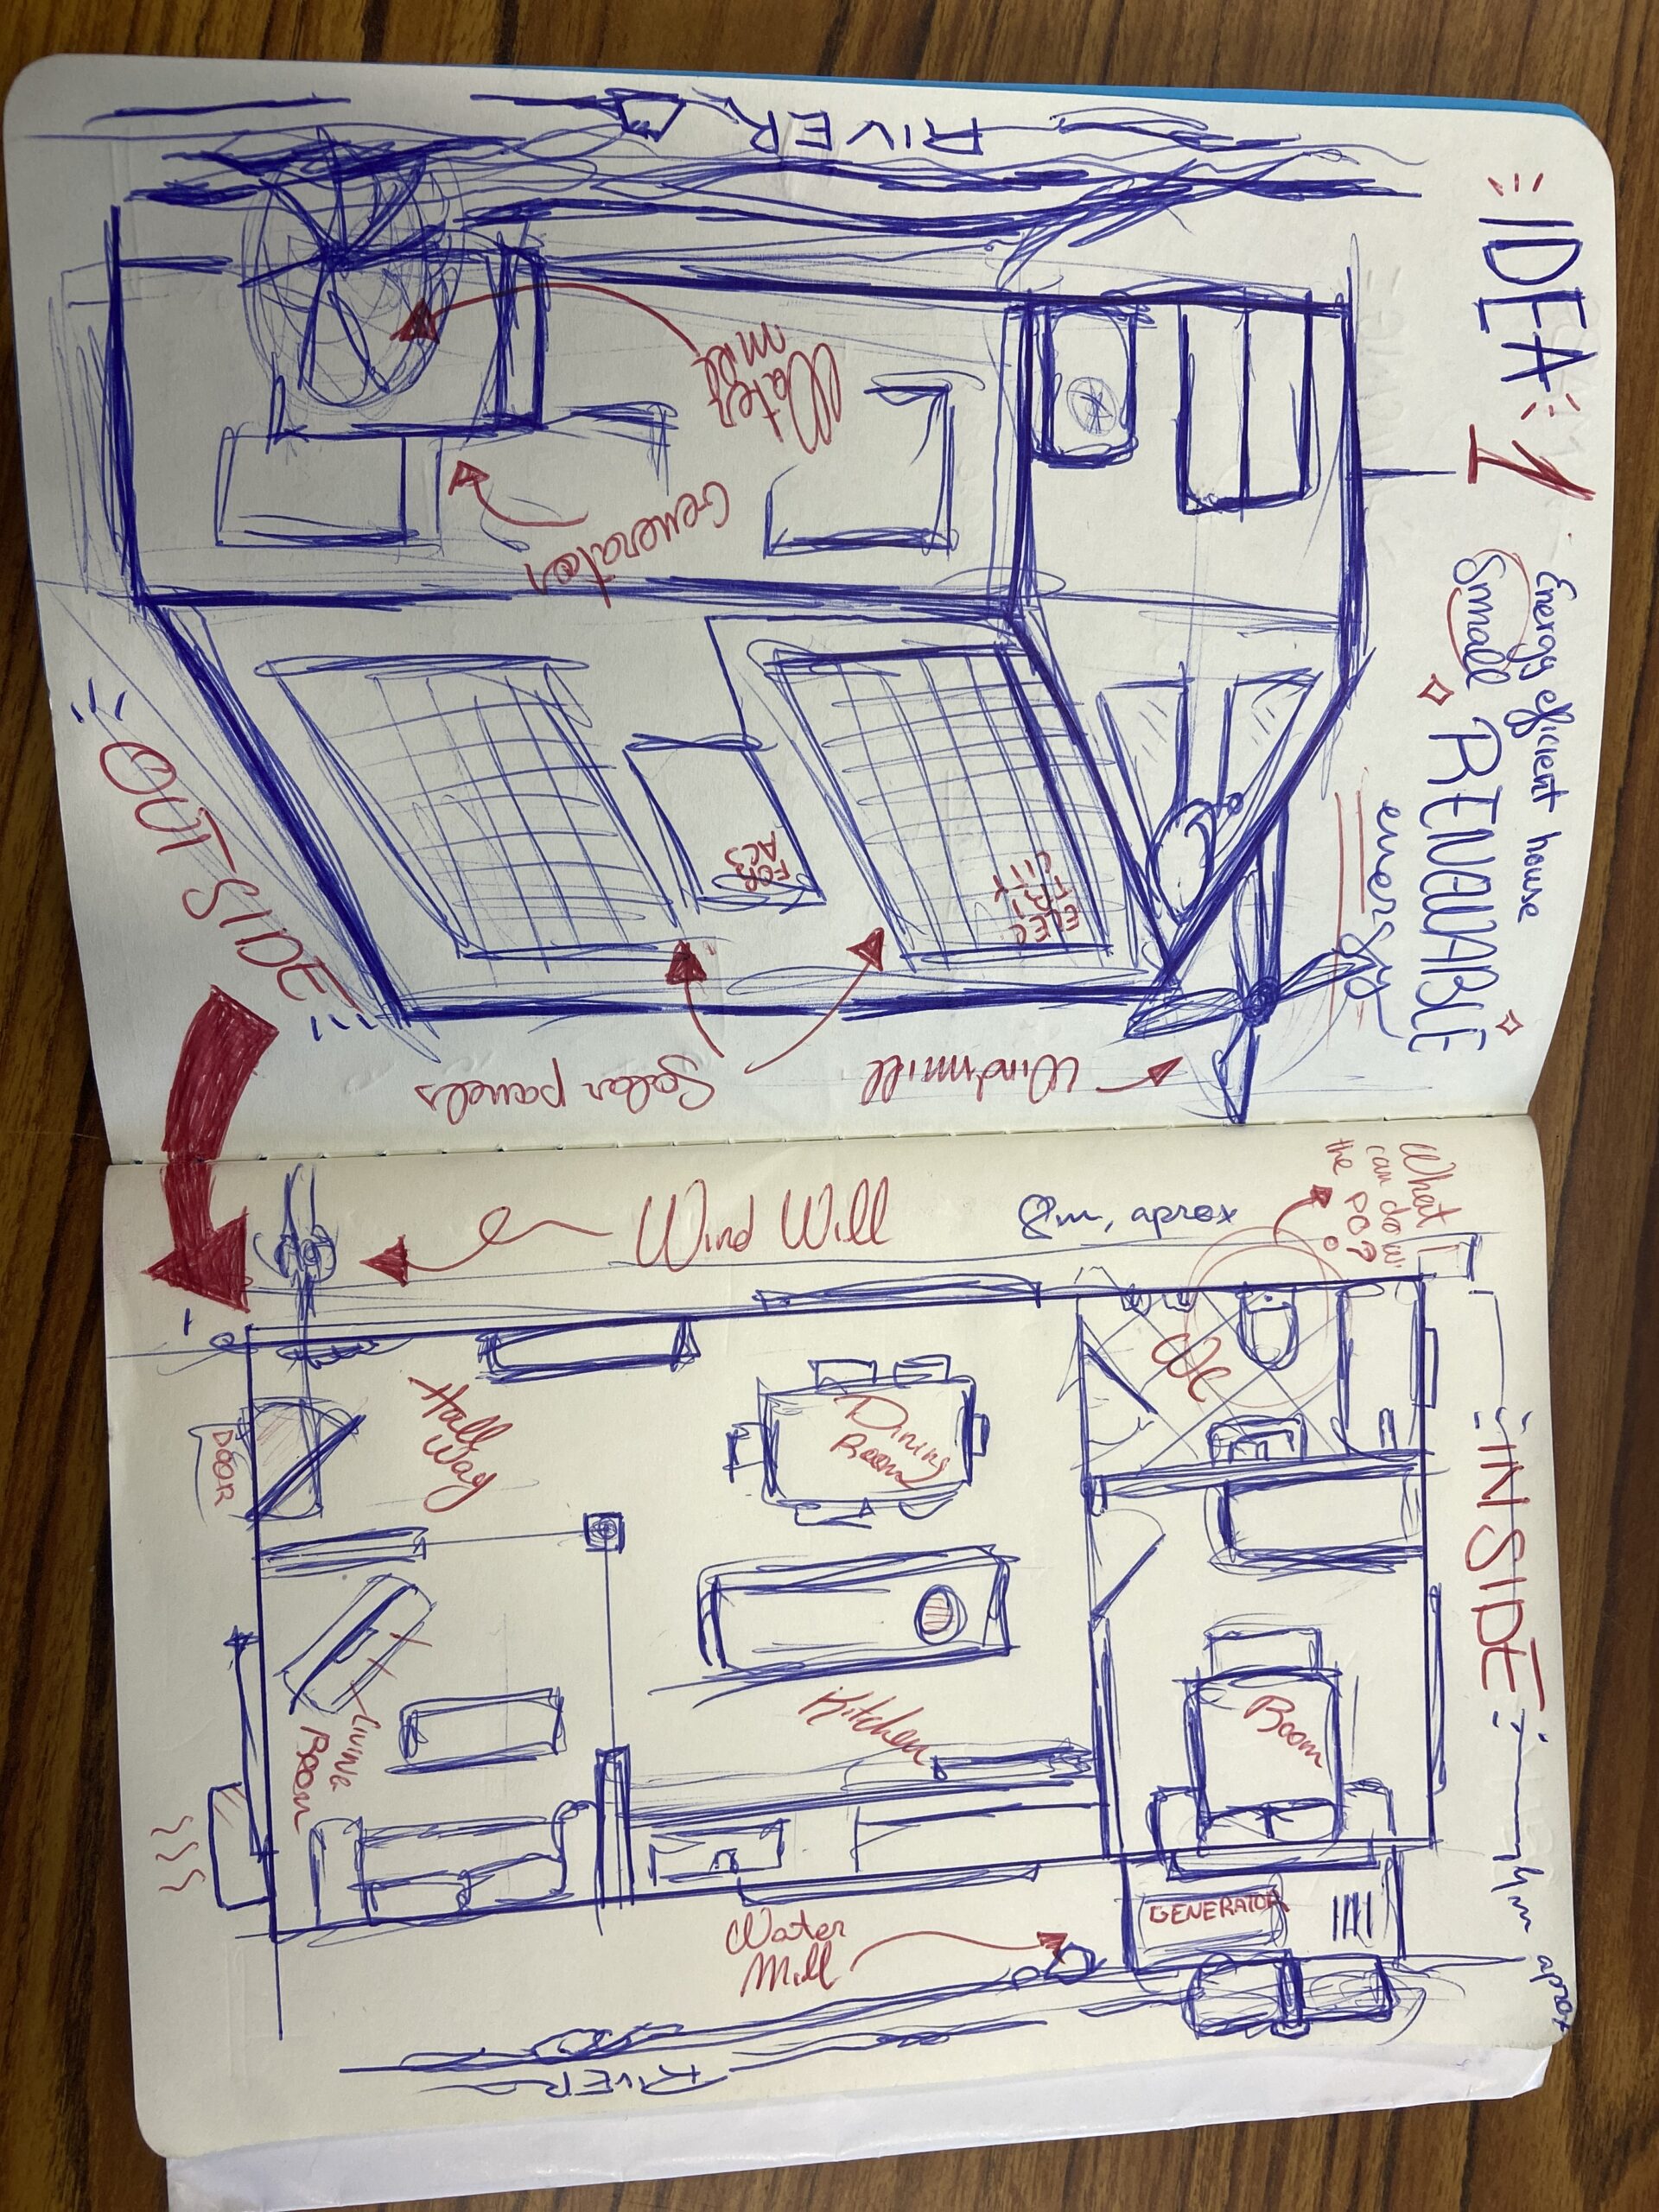 IDEA: 1
Energy efficient house
Small RENOWABLE
energy
RIVER
Water
Mill
Generator
FOR
ACS
ELEC
TRI
CITY
OUTSIDE
Solar panels
Windmill
Wind Will
8m, aprox
What
can do w.
the po?
WC
INSIDE
4m aprox
Hall
Way
DOOR
Dining
Room
Kitchen
Living
Room
Room
GENERATOR
Water
Mill
RIVER